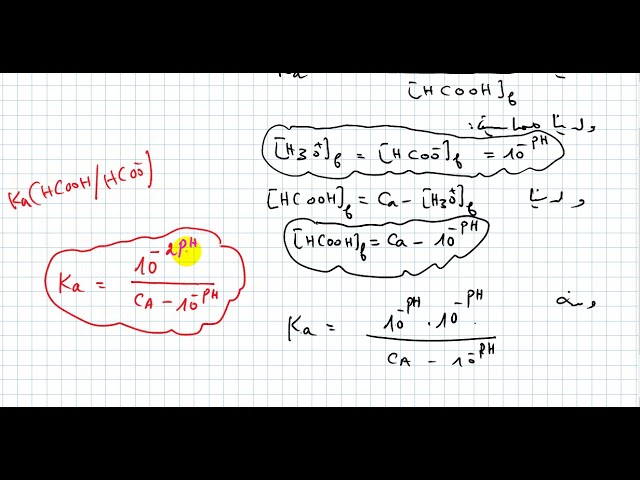 [HCOOH]f
ولدينا مما سبق:
[H3O⁺]f = [HCOO⁻]f = 10^-PH
ولدينا [HCOOH]f = Ca - [H3O⁺]f
[HCOOH]f = Ca - 10^-PH
ومنه
Ka = 10^-PH . 10^-PH / CA - 10^-PH
Ka(HCOOH/HCOO⁻)
Ka = 10^-2PH / CA - 10^-PH